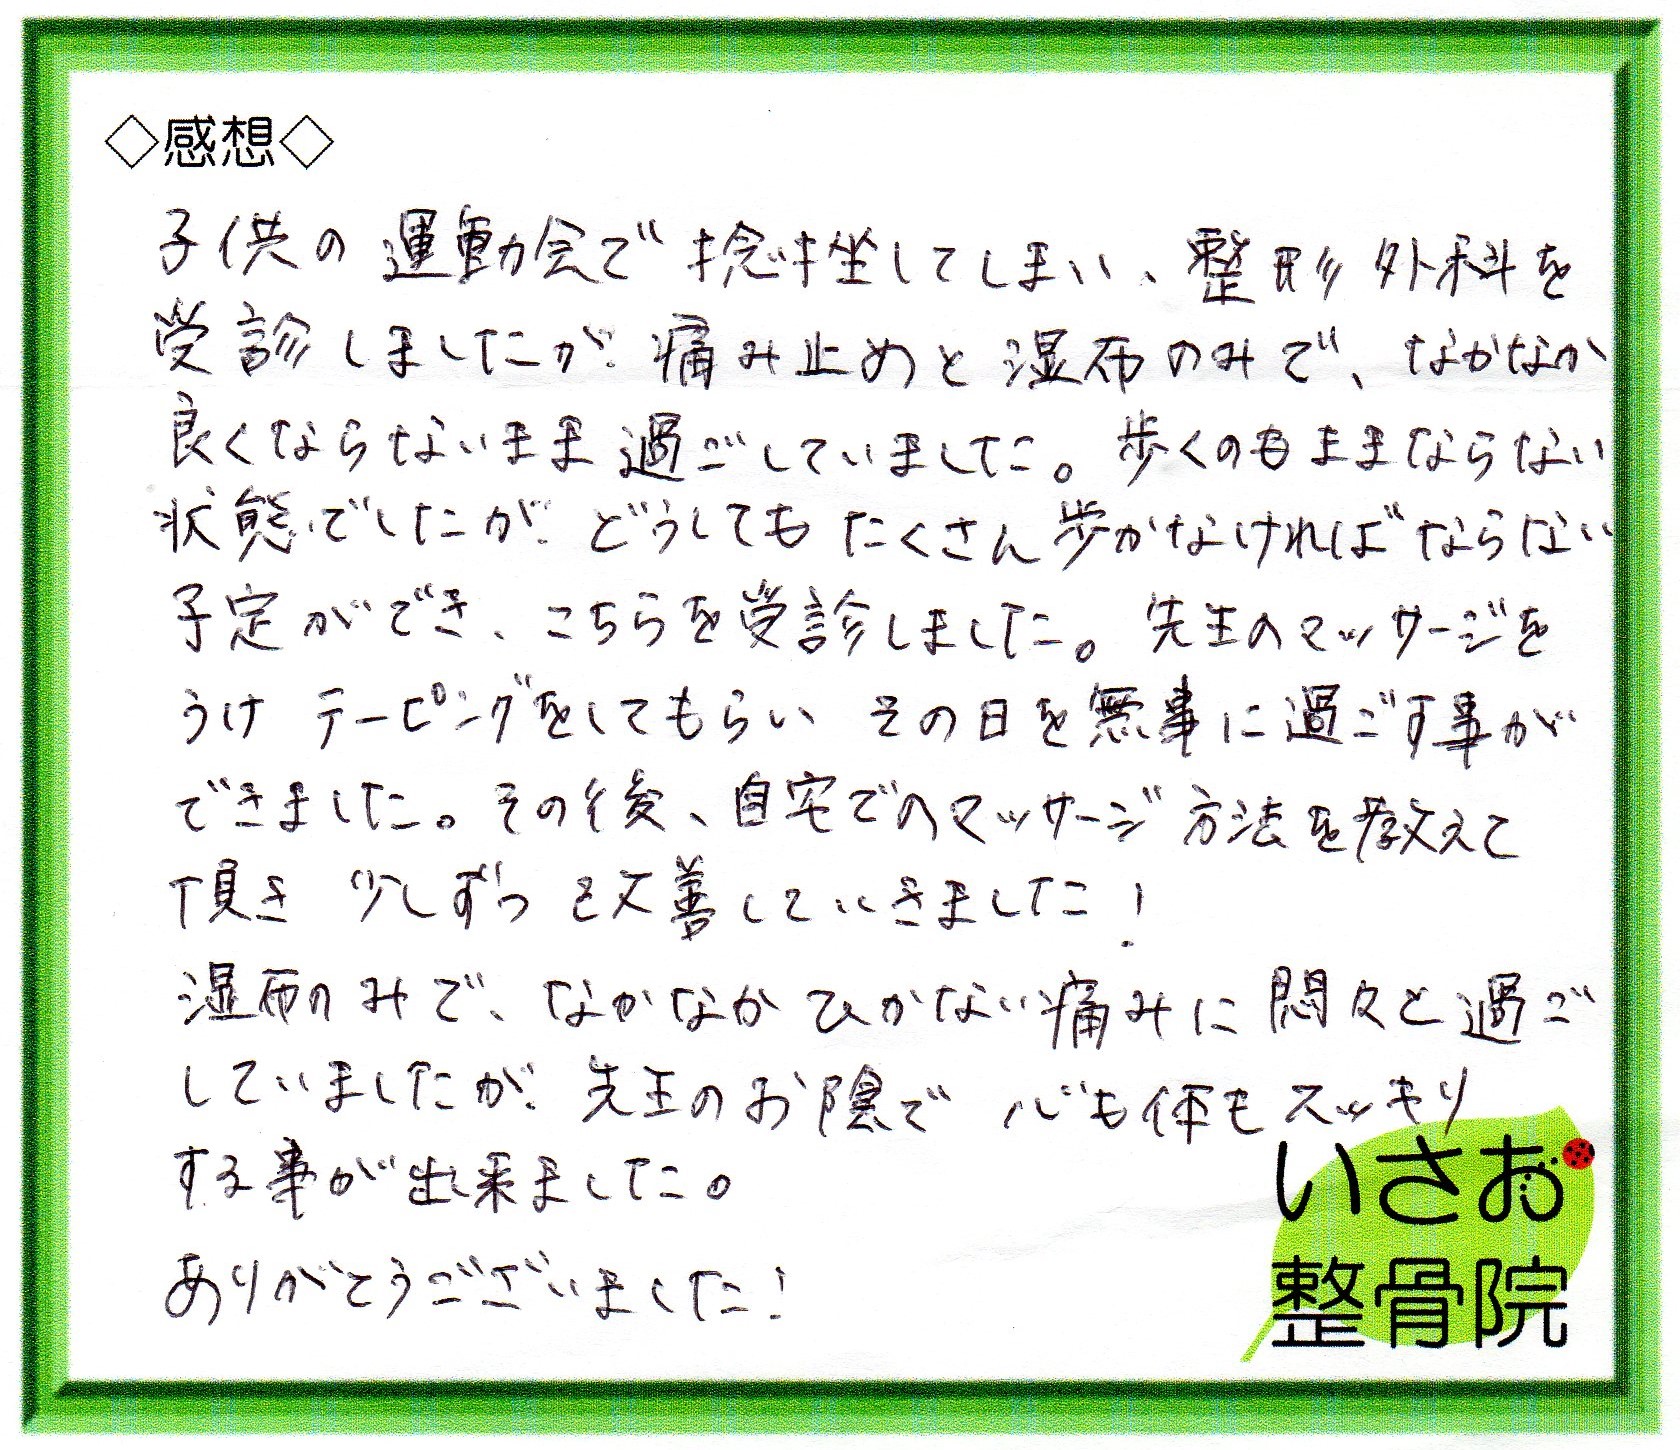 ◇感想◇
子供の運動会で捻挫してしまい、整形外科を
受診しましたが、痛み止めと湿布のみで、なかなか
良くならないまま過ごしていました。歩くのもままならない
状態でしたが、どうしてもたくさん歩かなければならない
予定ができ、こちらを受診しました。先生のマッサージを
うけ テーピングをしてもらい その日を無事に過ごす事が
できました。その後、自宅でのマッサージ方法を教えて
頂き 少しずつ改善していきました！
湿布のみで、なかなかひかない痛みに悶々と過ご
していましたが、先生のお陰で 心も体もスッキリ
する事が出来ました。
ありがとうございました！
いさお
整骨院